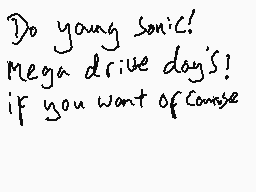 Do young Sonic!
Mega drive day's!
if you want of Course